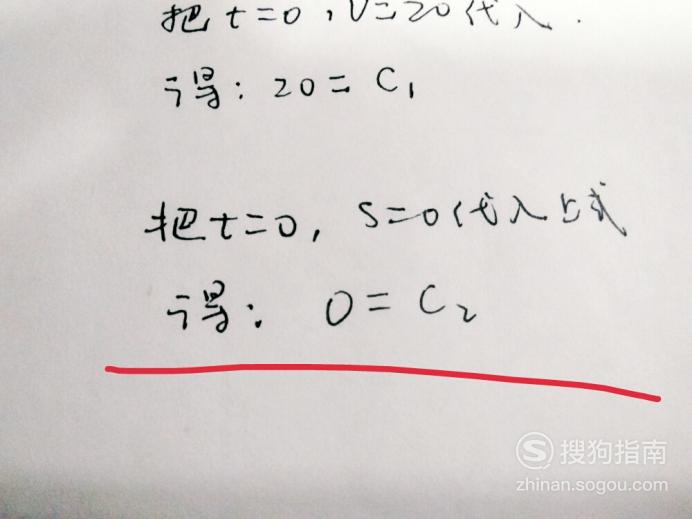 把t=0,V=20代入.
得: 20=C₁
把t=0, S=0代入上式
得: 0=C₂
搜狗指南
zhinan.sogou.com